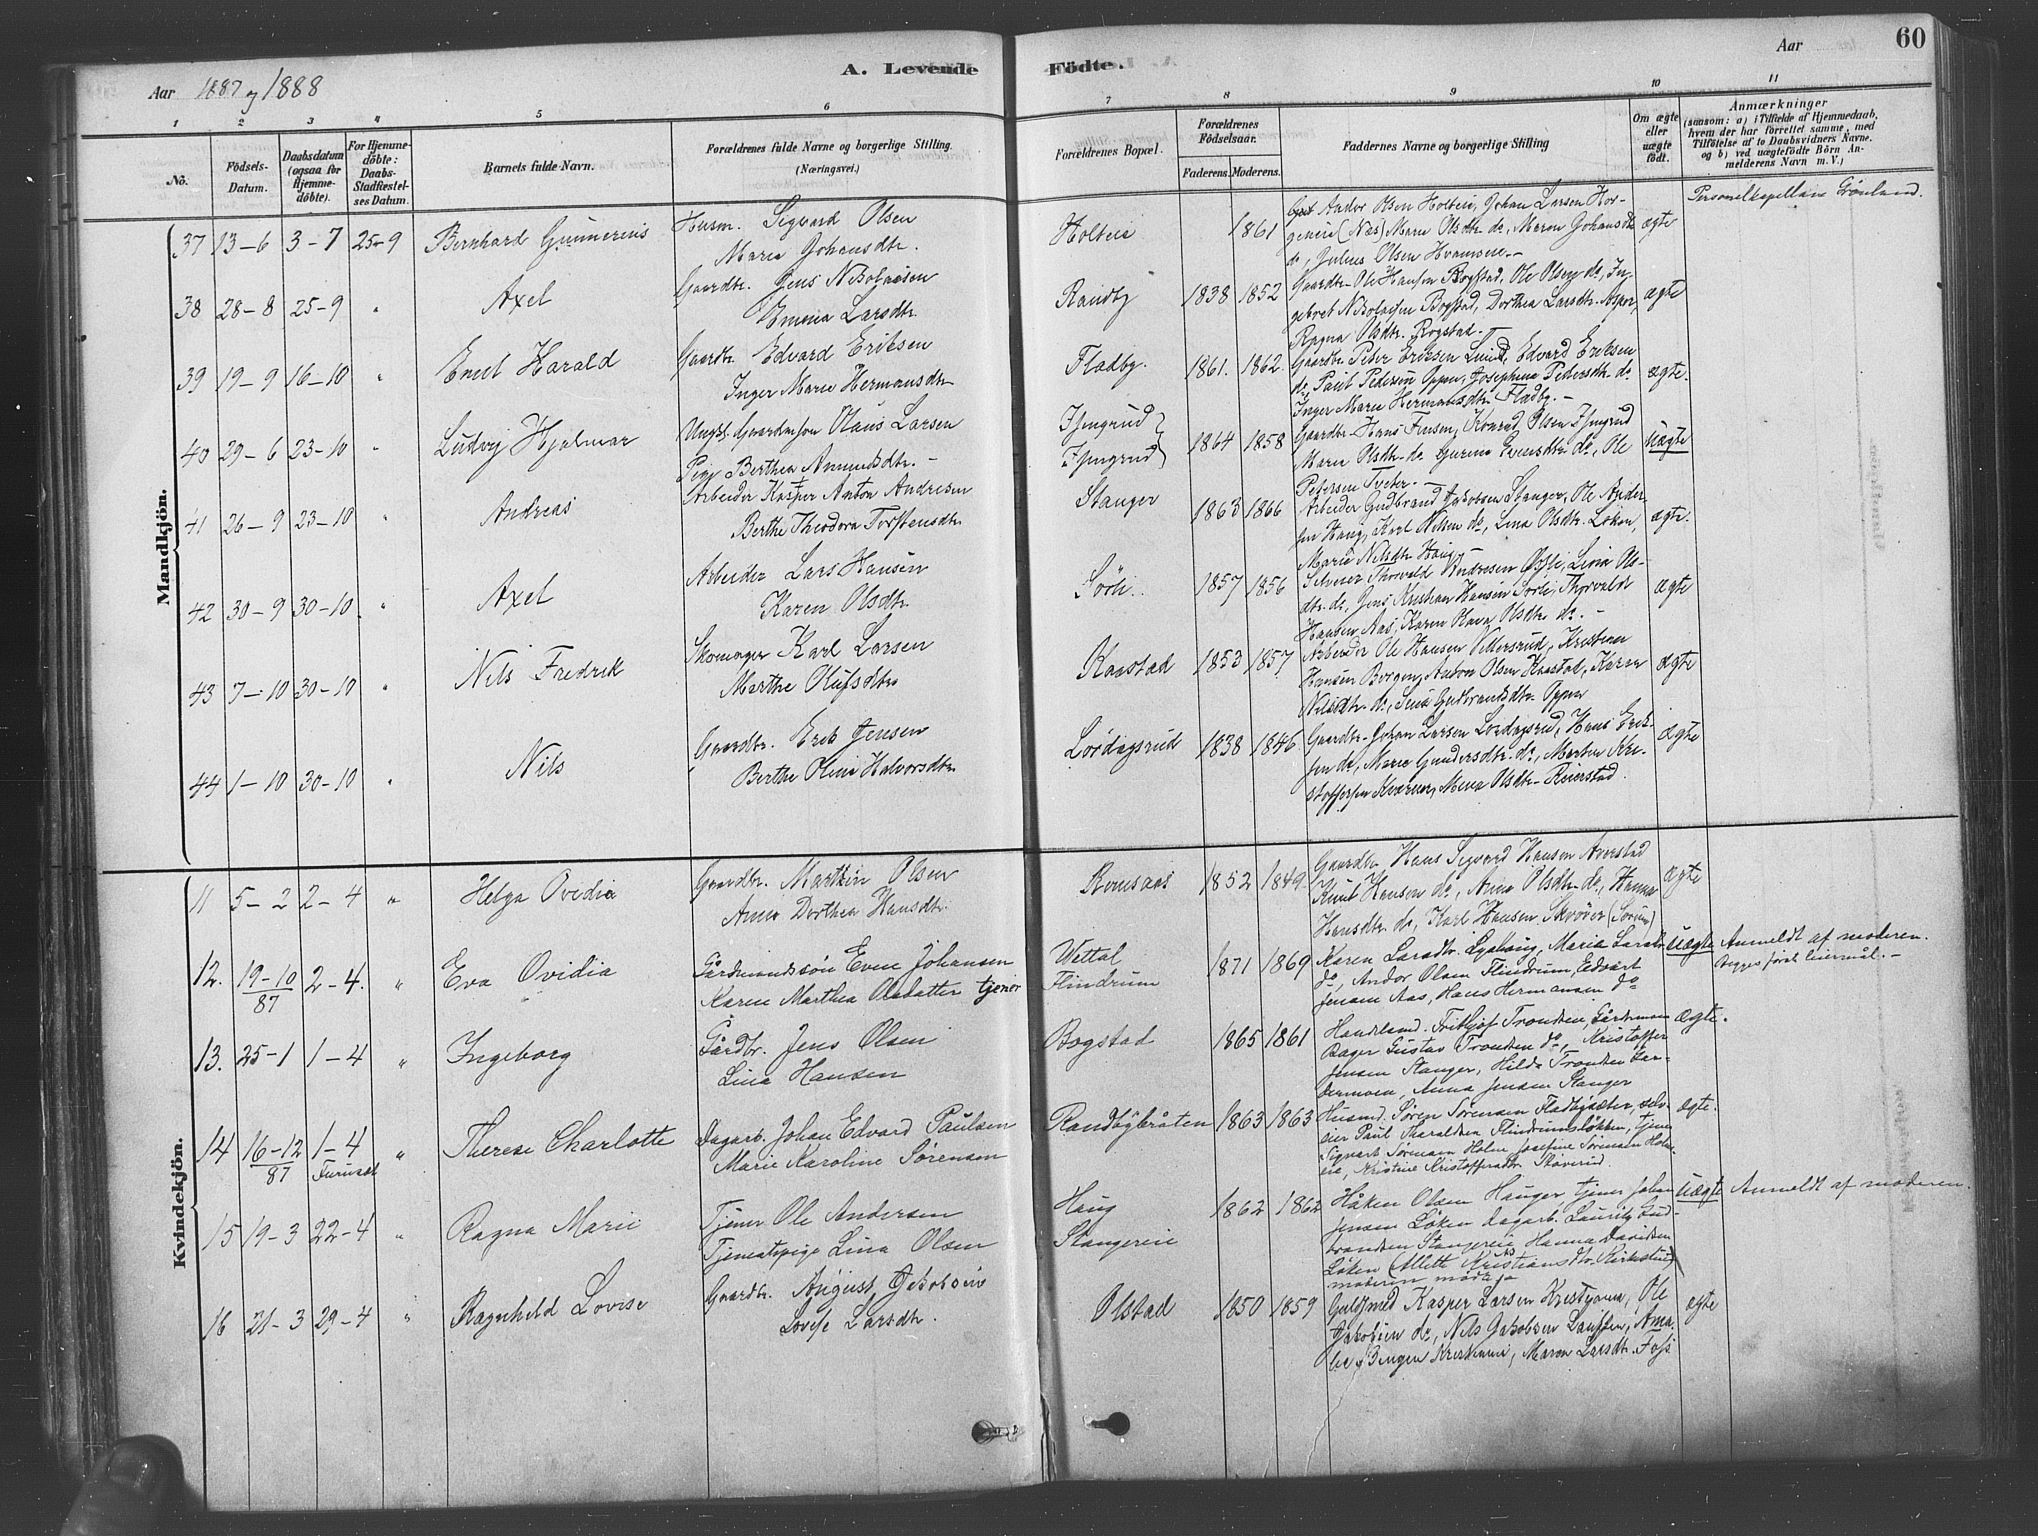 60
Aar 1887 og 1888
A. Levende Födte.
Aar
1 2 3 4 5 6 7 8 9 10 11
No.
Födsels-Datum.
Daabsdatum (ogsaa for Hjemme-döbte).
For Hjemme-döbte: Daabs-Stadfæstel-ses Datum.
Barnets fulde Navn.
Forældrenes fulde Navne og borgerlige Stilling. (Næringsvei.)
Forældrenes Bopæl.
Forældrenes Födselsaar.
Faderens. Moderens.
Faddernes Navne og borgerlige Stilling
Om ægte eller uægte födt.
Anmærkninger
(saasom: a) i Tilfælde af Hjemmedaab,
hvem der har forrettet samme, med
Tilföielse af to Daabsvidners Navne.
og b) ved uægtefödte Börn An-
melderens Navn m. V.)
Mandkjön.
37 13-6 3-7 25-9 Bernhard Gunnerius Husm. Sigvard Olsen
Maria Johansdtr. Holteie 1861
Andor Olsen Holteie, Johan Larsen Hor-
geneie (Næs) Maren Olsdtr. do, Maren Johansdtr
do, Julius Olsen ægte Personelkapellan Grönland.
38 28-8 25-9 " Axel Gaardbr. Jens Nikolaisen
Emma Larsdtr. Randby 1838 1852
Gaardbr. Ole Hansen Bogstad, Ole Olsen do, In-
geborg Nikolaisen Bogstad, Dorthea Larsdtr. Asper,
Ragna Olsdtr. Bogstad.- ægte
39 19-9 16-10 " Emil Harald Gaardbr. Edvard Eriksen
Inger Marie Hermansdtr Fladby. 1861. 1862.
Gaardbr. Peder Eriksen Lund, Edvard Eriksen
do, Paul Pedersen Oppen, Josephine Pedersdtr. do.
Inger Marie Hermansdtr Fladby.- ægte.
40 29-6 23-10 " Ludvig Hjalmar Ungk. Gaardmsøn Olaus Larsen
Pige Berthea Amundsdtr.- 1864 1858
Gaardbr. Hans Jensen, Konrad Olsen
Maren Olsdtr. do Gurine Evensdtr. do, Ole
Petersen Tveter.- Uægte
41 26-9 23-10 " Andreas Arbeider Kasper Anton Andresen
Berthe Theodora Torstensdtr Stanger 1863 1866
Arbeider Gudbrand Jakobsen Stanger, Ole Ander-
sen Haug, Karl Nilsen do, Lina Olsdtr. Løken,
Marie Nilsdtr Haug.- ægte.
42 30-9 30-10 " Axel Arbeider Lars Hansen
Karen Olsdtr. Sörli 1857 1856
Selveier Thorvald Andresen, Lina Ols-
dtr. do, Jens Kristian Hansen Sörli, Thorvald
Hansen Aas, Karen Olava Olsdtr. do.- ægte
43 7-10 30-10 " Nils Fredrik Skomager Karl Larsen
Marthe Olufsdtr Kaastad 1853 1857
Arbeider Ole Hansen, Kristian
Hansen Borgen, Anton Olsen Kaastad, Karen
Nilsdtr. do, Lina Gudbrandsdtr. Oppen ægte
44 1-10 30-10 " Nils Gaardbr. Erik Jensen
Berthe Oline Halvorsdtr Lördagsrud 1838 1846
Gaardbr. Johan Larsen Lördagsrud, Hans Erik-
sen do, Marie Gundersdtr. do, Martin Kri-
stoffersen Kværner, Mina Olsdtr. Reierstad. ægte
Kvindekjön.
11 5-2 2-4 " Helga Ovidia Gaardbr. Marthin Olsen
Anne Dorthea Hansdtr. Romsaas 1852 1849
Gaardbr. Hans Sigvard Hansen Averstad
Knut Hansen do, Anna Olsdtr. do, Hanna
Hansdtr. do, Karl Hansen Skröver (Sörum) ægte
12. 19-10 87 2-4. " Eva Ovidia Gårdmandssön Even Johansen
Karen Marthea Olsdatter tjener Wettal
Flindrum 1871 1869
Karen Larsdtr. Lyshaug, Maria Larsdtr
do, Andor Olsen Flindrum, Edvart
Jensen Aas, Hans Hermansen do uægte Anmeldt af moderen.
Begges förste leiermål.-
13. 25-1 1-4 " Ingeborg Gårdbr. Jens Olsen
Lina Hansen Bogstad 1865 1861
Handelsmd. Frithjof Trondsen,
Bager Gustav Trondsen do, Kristoffer
Jensen Stanger, Hilda Trondsen
Anna Jensen Stanger ægte.
14 16-12 87 1-4 Furuset " Therese Charlotte Dagarb. Johan Edvard Paulsen
Marie Karoline Sörensen Randbybråten 1863 1863
Husmd. Sören Sörensen Fladbysæter, selv-
eier Paul Tharaldsen Flindrumslökken, tjener
Sigvart Sörensen Holm, Josefine Sörensen Holm-
eie, Kristine Kristoffersdtr. Stöverud. ægte.
15 19-3 22-4 " Ragna Marie Tjener Ole Andersen
Tjenestepige Lina Olsen Haug
Stangereie 1862 1862
Håken Olsen Hauger, tjener Johan
Jensen Löken, dagarb. Lauritz Gud-
brandsen Stangereie, Hanna Davidsen
Löken (Mette Kristiansdtr.)
moderen uægte Anmeldt af moderen.
16 21-3 29-4 " Ragnhild Lovise Gaardbr. August Jakobsen
Lovise Larsdtr. Olstad 1850 1859
Guldsmed Kasper Larsen Kristiania, Ole
Jakobsen do, Nils Jakobsen, Ama-
lie Bingen Kristiania, Maren Larsdtr. Foss ægte